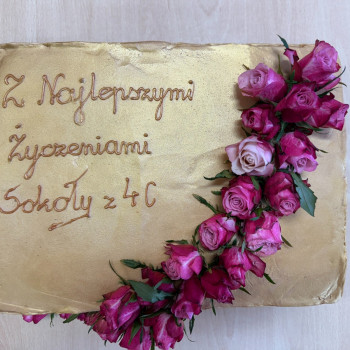 Z Najlepszymi
Życzeniami
Sokoły z 4C